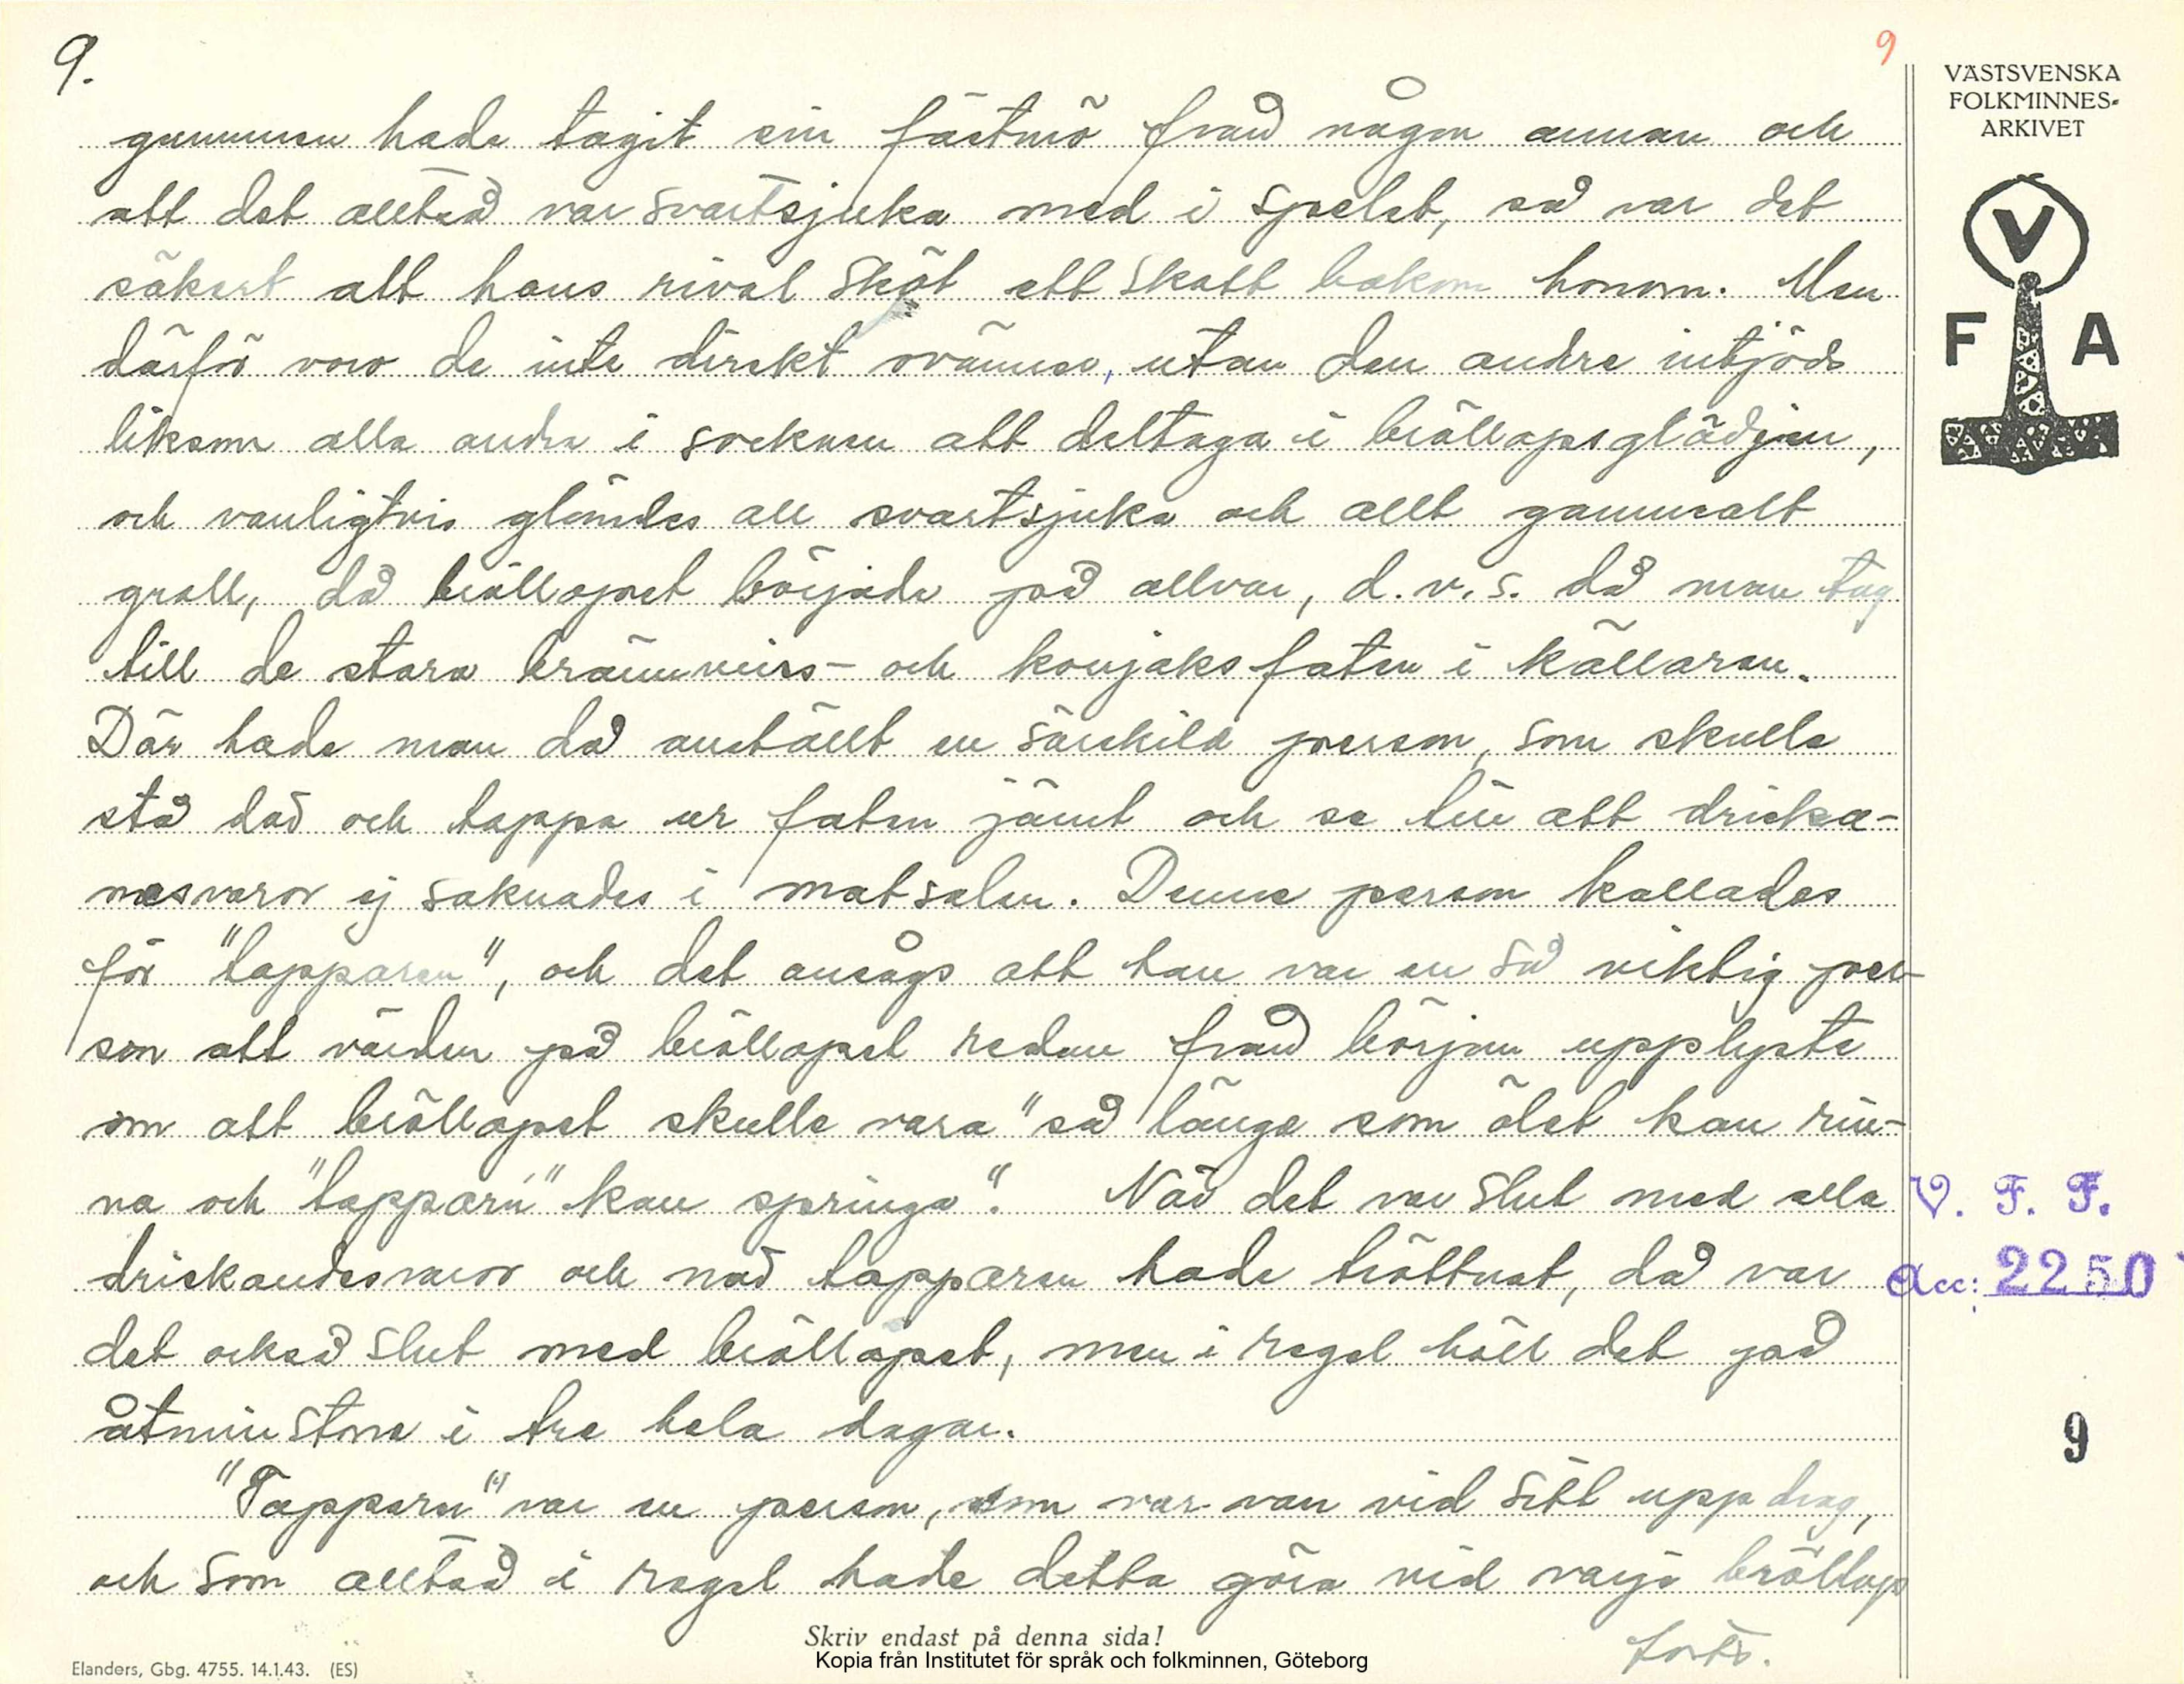 9.
9
VÄSTSVENSKA
FOLKMINNES-
ARKIVET
V
F A
gummen hade tagit sin fästmö från någon annan och
att det alltså var svartsjuka med i spelet, så var det
säkert att hans rival sköt ett skott bakom honom. Men
därför voro de inte direkt ovänner, utan den andre intjöds
liksom alla andra i socknen att deltaga i bröllopsglädjen,
och vanligtvis glömdes all svartsjuka och allt gammalt
groll, då bröllopet började på allvar, d.v.s. då man tog
till de stora brännvins- och konjaksfaten i källaren.
Där hade man då anställt en särskild person, som skulle
stå där och tappa ur faten jämt och se till att dricka-
nesvaror ej saknades i matsalen. Denne person kallades
för "tapparen", och det ansågs att han var en så viktig per-
son att värden på bröllopet redan från början upplyste
om att bröllopet skulle vara "så länge som ölet kan rin-
na och "tapparn" kan springa". När det var slut med alla
drickandesvaror och när tapparen hade tröttnat, då var
det också slut med bröllopet, men i regel höll det på
åtminstone i tre hela dagar.
"Tapparn" var en person, som var van vid sitt uppdrag,
och som alltså i regel hade detta göra vid varje bröllop
forts.
V. F. F.
Acc: 2250
9
Skriv endast på denna sida!
Kopia från Institutet för språk och folkminnen, Göteborg
Elanders, Gbg. 4755. 14.1.43. (ES)